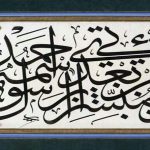 ومبشرا برسول يأتي من بعدي اسمه احمد